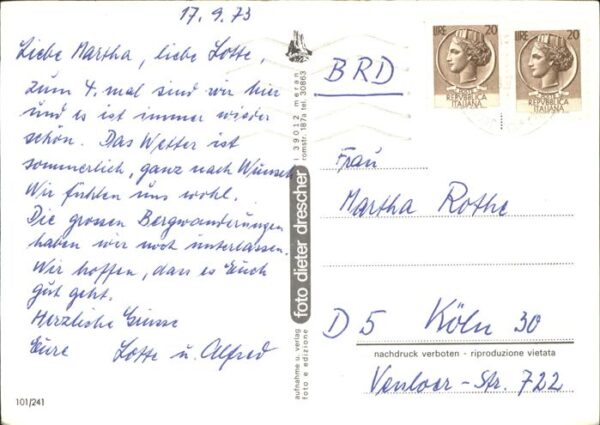 17.9.73
Liebe Martha, liebe Lotte,
zum 4. mal sind wir hier
und es ist immer wieder
schön. Das Wetter ist
sommerlich, ganz nach Wunsch
Wir fühlen uns wohl.
Die grossen Bergwanderungen
haben wir unterlassen.
Wir hoffen, dass es Euch
gut geht.
Herzliche Grüsse
Eure Lotte u. Alfred
101/241
I 39012 meran
romstr. 187a tel. 30863
foto dieter drescher
aufnahme u. verlag
foto e edizione
BRD
LIRE 20
REPVBBLICA
ITALIANA
LIRE 20
REPVBBLICA
ITALIANA
Frau
Martha Rothe
D 5 Köln 30
nachdruck verboten - riproduzione vietata
Venloer-Str. 722